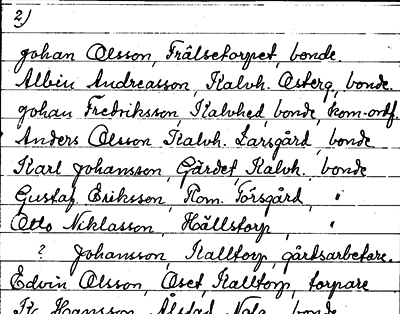 2)
Johan Olsson, Frälsetorpet, bonde.
Albin Andreasson, Kalvh. Österg., bonde.
Johan Fredriksson, Kalvhed, bonde, kom-ordf.
Anders Olsson Kalvh. Larsgård, bonde
Karl Johansson, Gärdet, Kalvh. bonde
Gustaf Eriksson, Rom. Torsgård, "
Otto Niklasson, Hällstorp, "
? Johansson, Kalltorp, gårdsarbetare.
Edvin Olsson, Öset, Kalltorp, torpare
K. Hansson, Ålstad, bonde